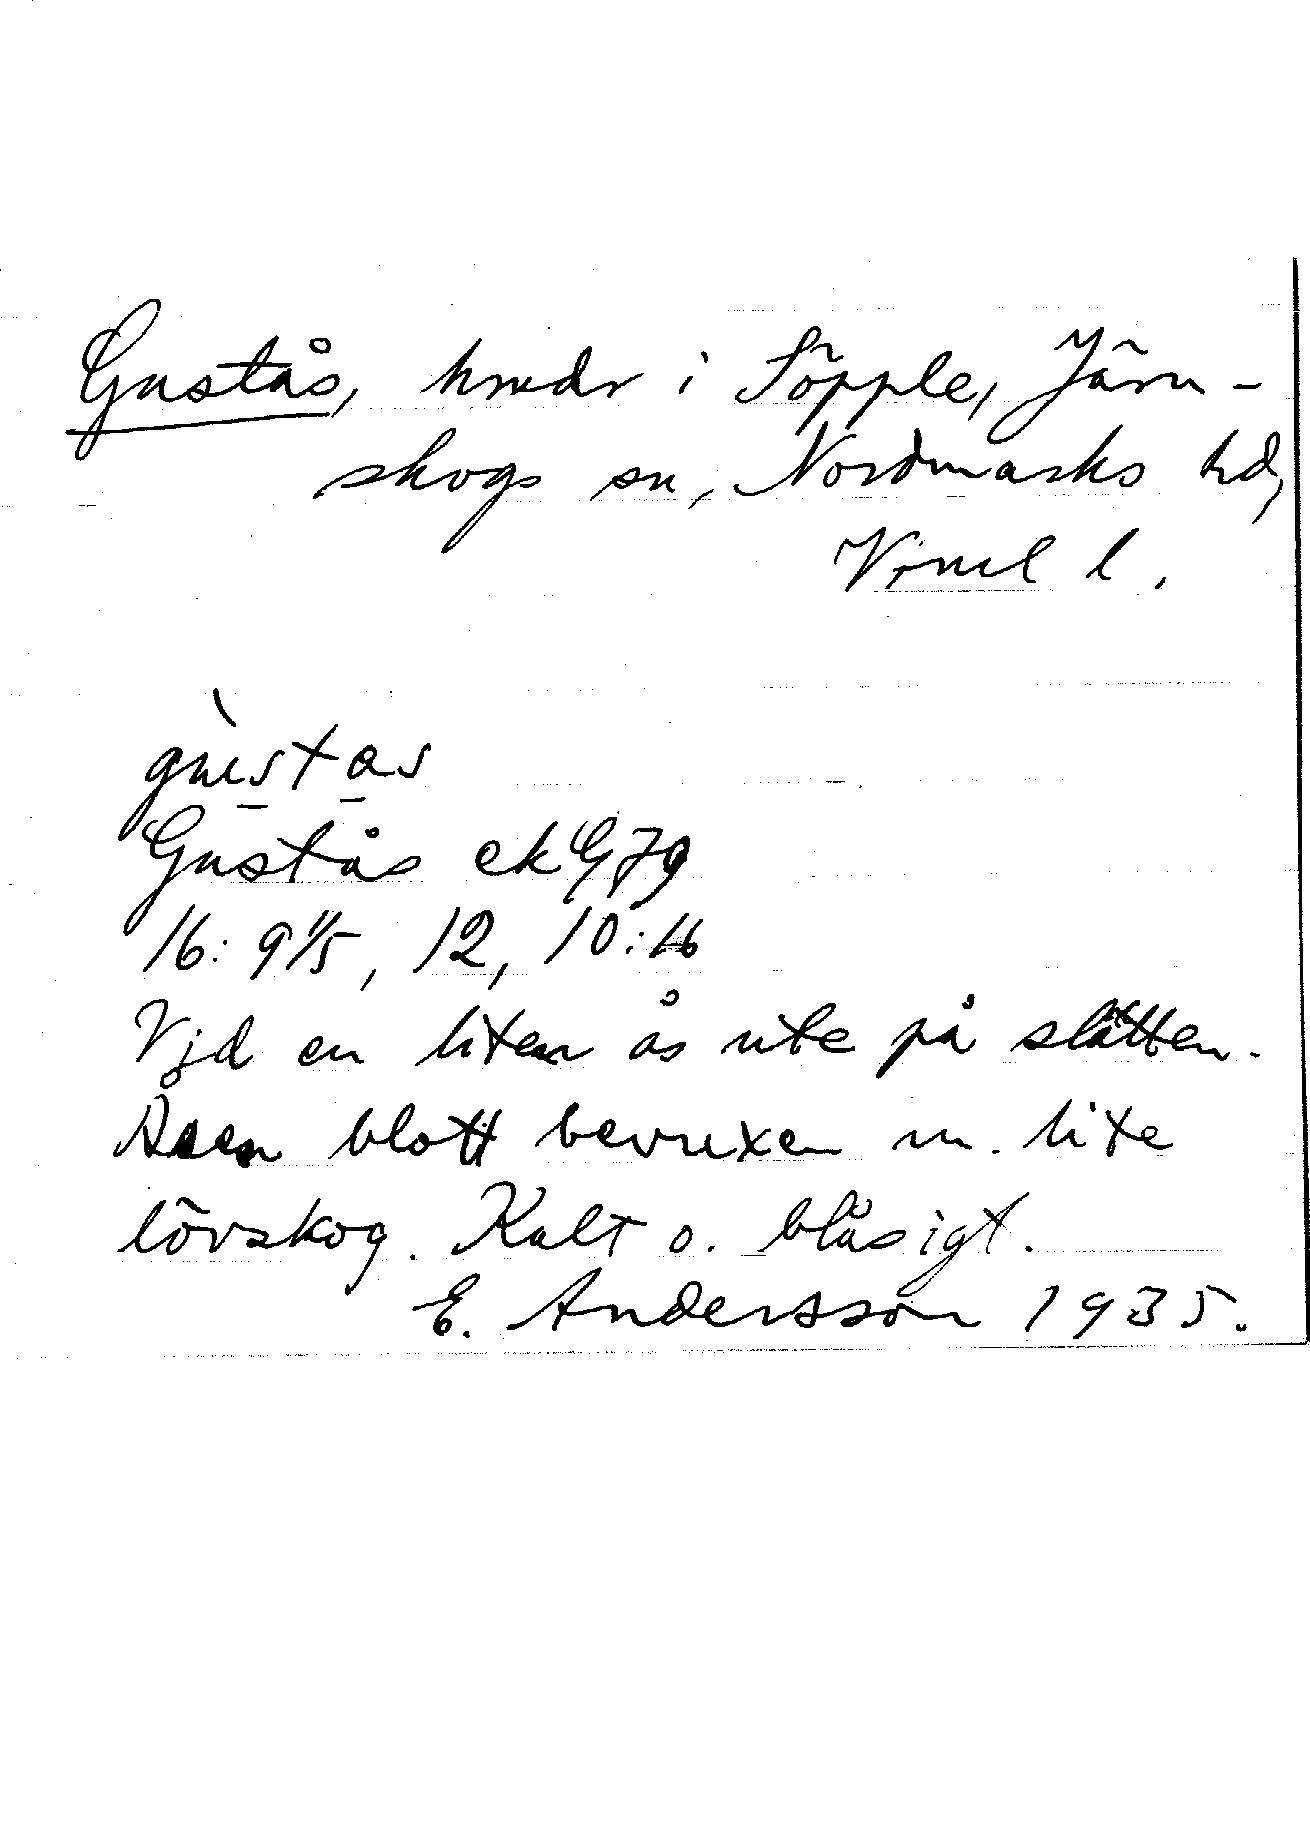 Gustås, hmdr i Söpple, Järn-
skogs sn, Nordmarks hd,
Vrml l.
gustas
Gustås ek G J g
16: 9 1/5, 12, 10:16
Vid en liten ås ute på slätten.
Åsen blott bevuxen m. lite
lövskog. Kalt o. blåsigt.
E. Andersson 1935.